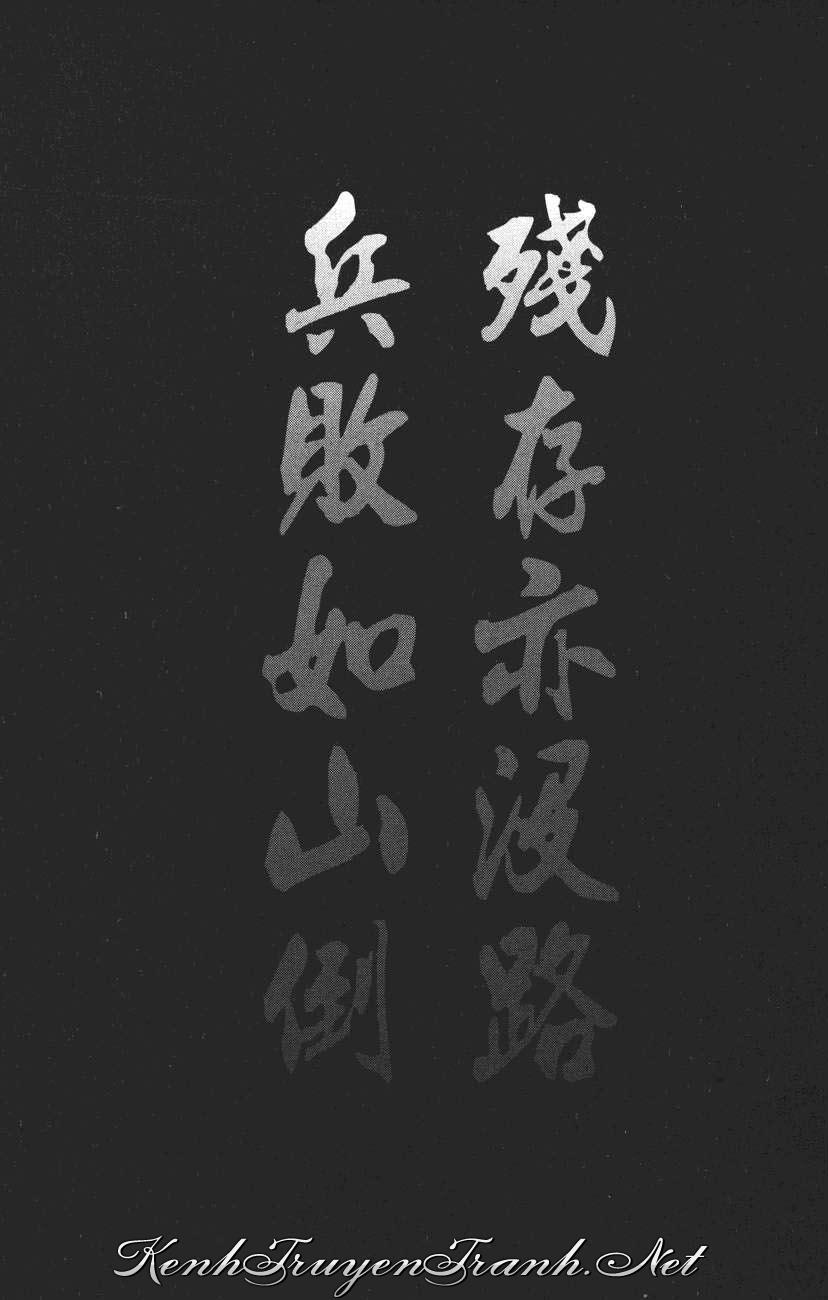 殘存亦没路
兵敗如山倒
KenhTruyenTranh.Net